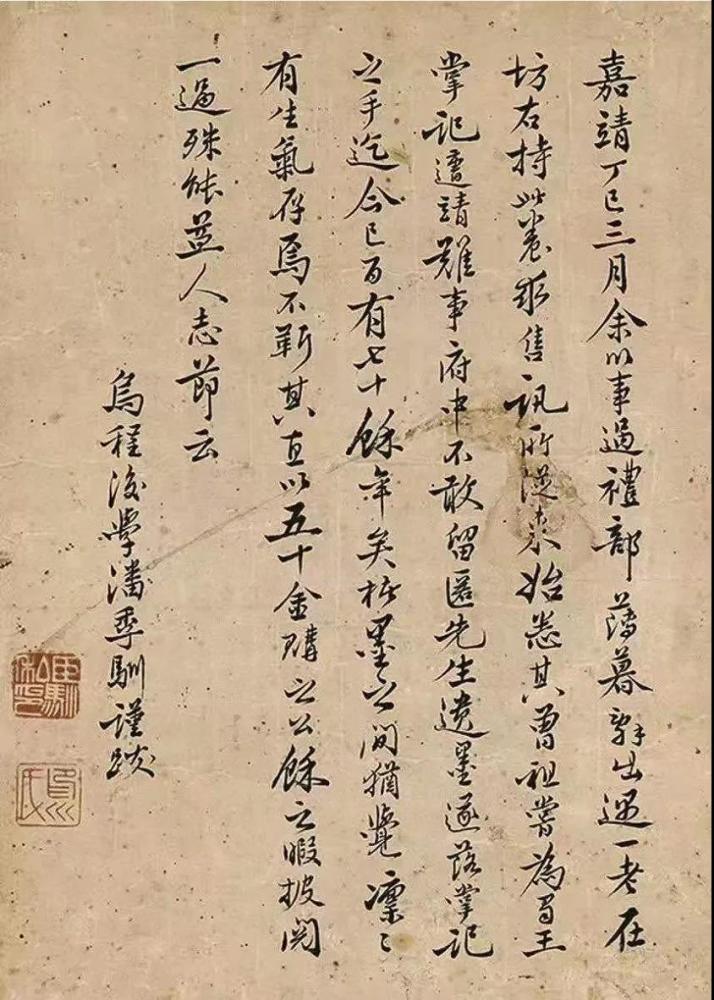 嘉靖丁巳三月余以事過禮部薄暮辭出遇一老在
坊右持此卷求售訊所從來始悉其曾祖嘗為蜀王
掌記遭靖難事府中不敢留匿先生遺墨遂落掌記
之手迄今已百有七十餘年矣楮墨之間猶覺凜〻
有生氣存焉不靳其直以五十金購之公餘之暇披閱
一過殊能益人志節云
烏程後學潘季馴謹跋
季馴
私印